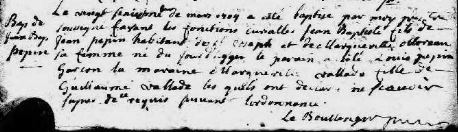 Le vingt de mars 1709 a esté baptisé par moy
Bap. de soussigné faisant les fonctions curialles Jean Baptiste fils de
Jean Bap. Jean Pepin habitant de St Joseph et de Marguerite
Pepin sa femme né du le parain a esté Louis Pepin
Garçon la maraine Marguerite Vallade fille de
Guillaume Vallade les quels ont declaré ne sçavoir
signer de ce requis suivant l'ordonnance
Le Boullenger